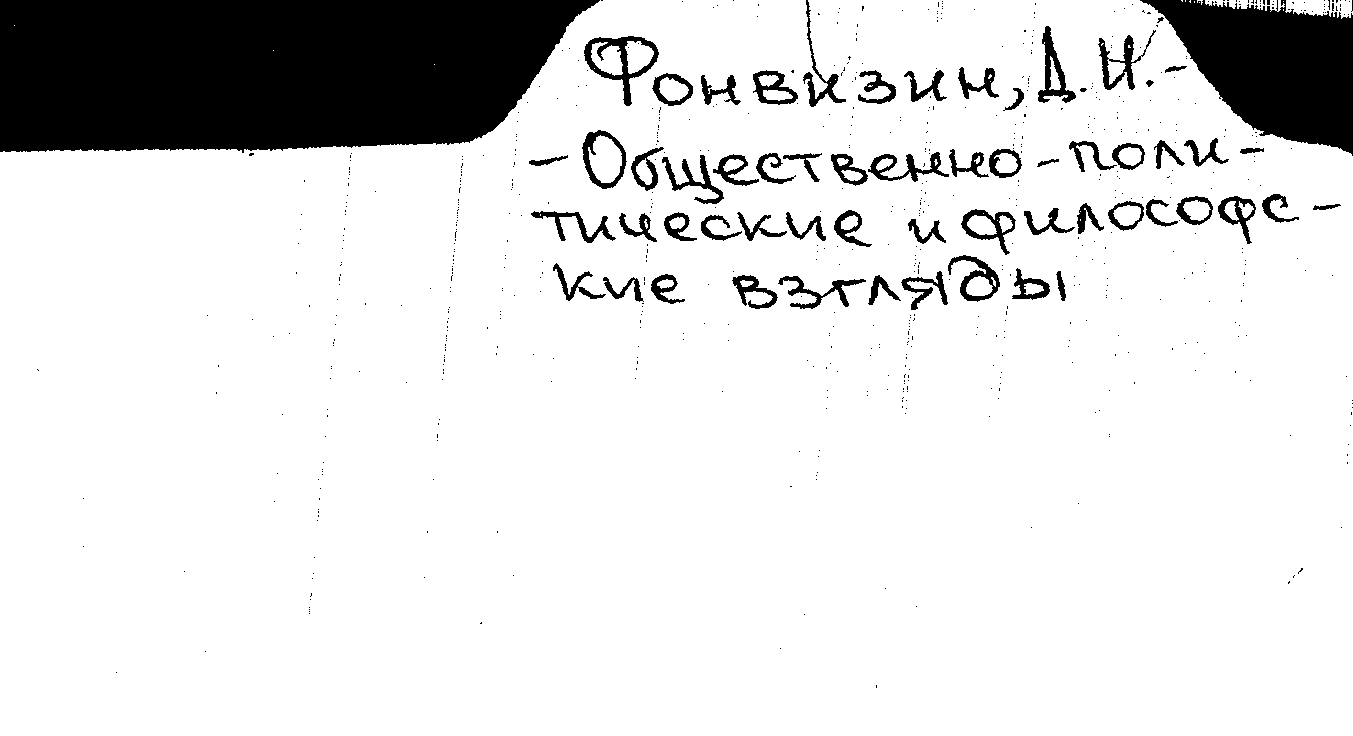 Фонвизин, Д. И. -
- Общественно-поли-
тические и философс-
кие взгляды